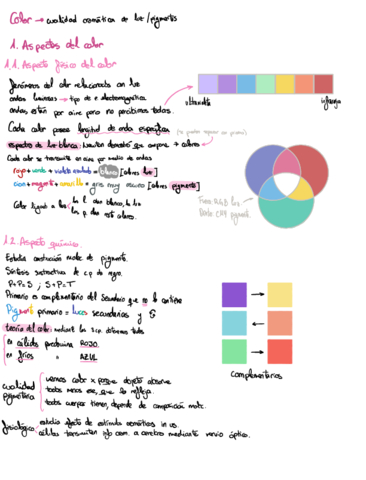 Color → cualidad cromática de luz/pigmentos
1. Aspectos del color
1.1. Aspecto físico del color
Fenómenos del color relacionados con las
ondas luminosas → tipo de e electromagnética
ondas, están por aire pero no percibimos todas.
ultravioleta
infrarroja
Cada color posee longitud de onda específica
espectro de luz blanca: Newton demostró que compone + colores
Cada color se transmite en aire por medio de ondas
rojo + verde + violeta azulado = blanco [colores luz]
cian + magenta + amarillo = gris muy oscuro [colores pigmento]
Color ligado a luz
1.2. Aspecto químico.
Estudia constitución molec de pigmento.
Síntesis sustractiva de c.p da negro.
P+P=S ; S+P=T
Primario es complementario del secundario que no lo contiene
Pigment primario = luces secundarias y
teoría del color: mediante los 3 c.p obtenemos todos
en cálidos predomina ROJO.
en fríos " AZUL.
complementarios
cualidad pigmentaria
vemos color x porque objeto absorbe
todos menos ese, que lo refleja
todos cuerpos tienen, depende de composición molec.
fisiológico: estudia efecto de estímulos cromáticos in us.
células transmiten info com. a cerebro mediante nervio óptico.